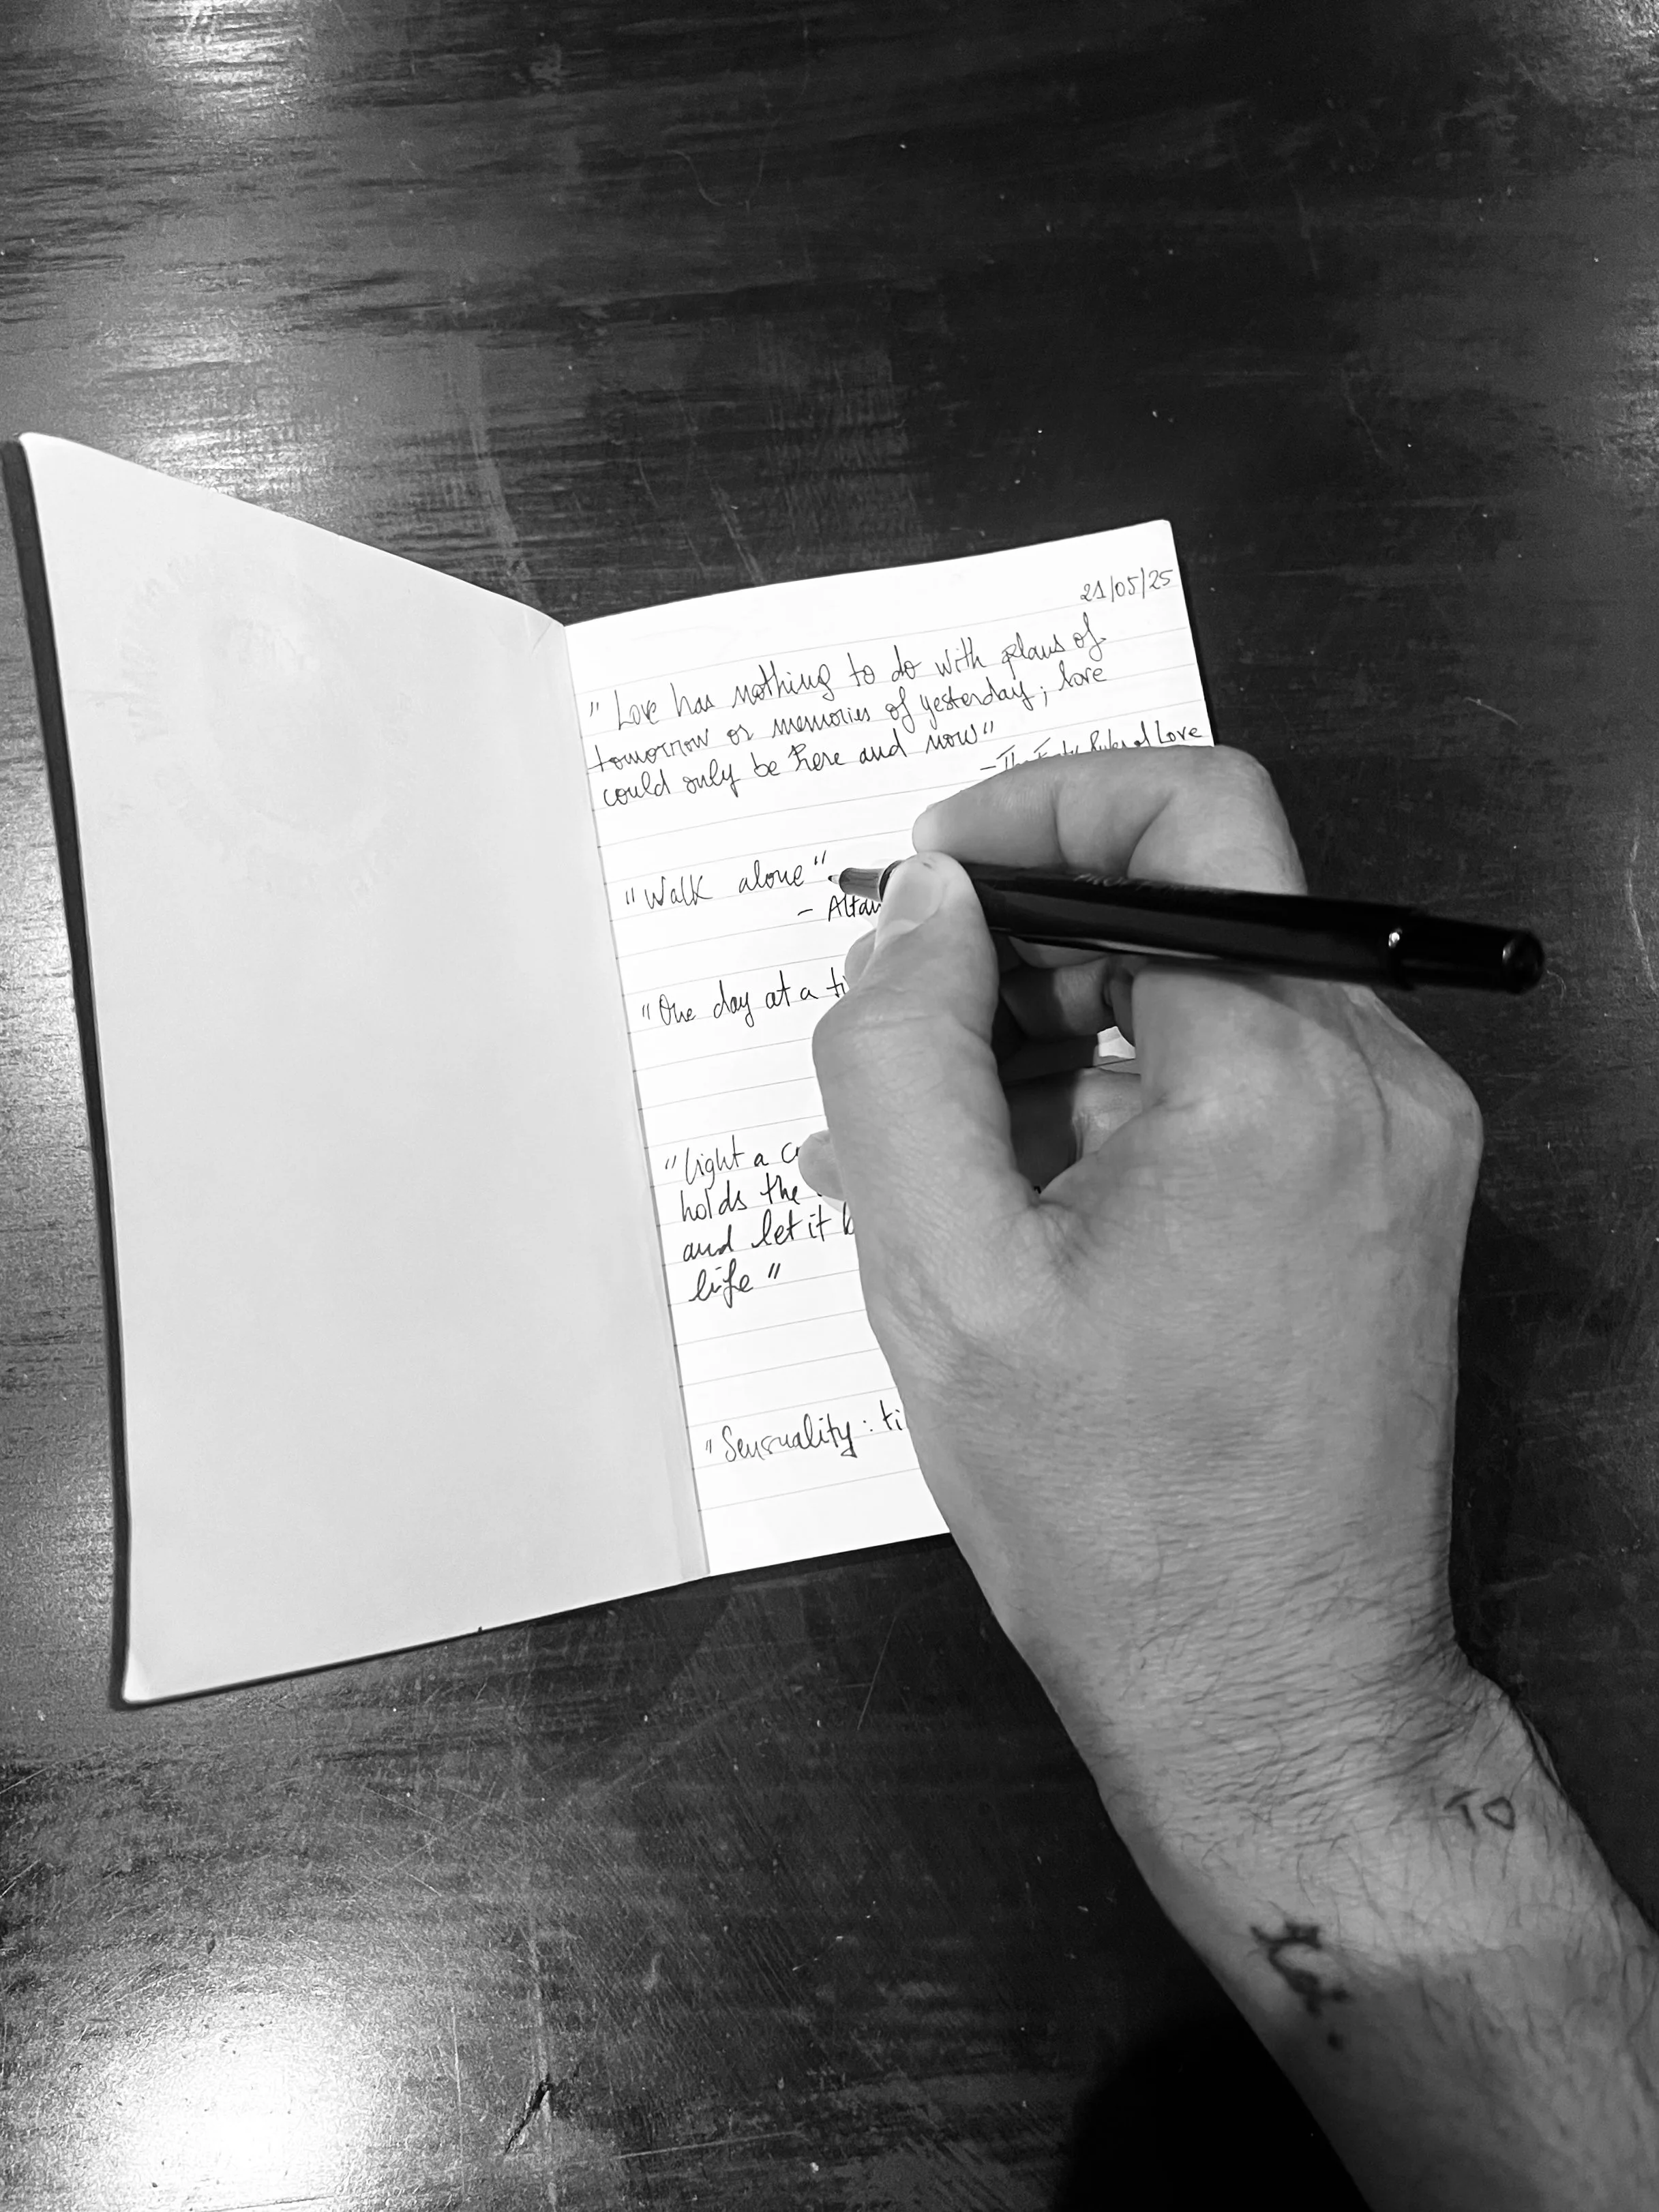 21/05/25
"Love has nothing to do with plans of
tomorrow or memories of yesterday; love
could only be here and now"
- The Forty Rules of Love
"Walk alone"
-
"One day at a
"Light a
holds the
and let it
life"
"Sensuality:
TO